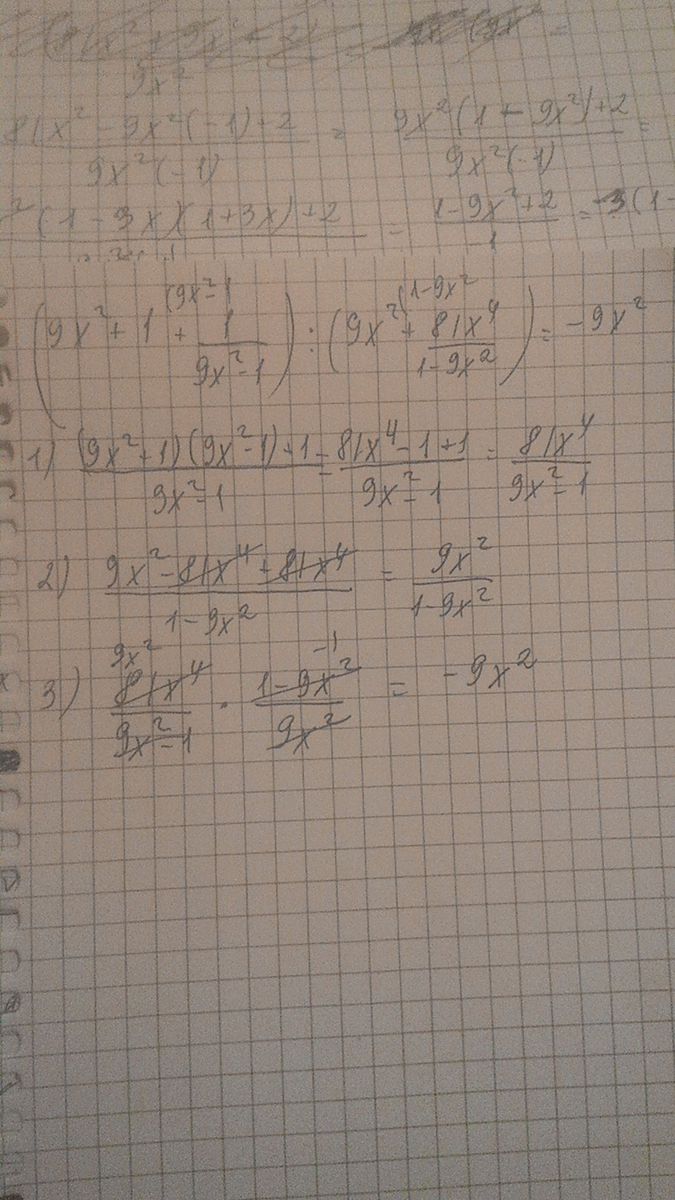 9x²
81x² - 9x²(-1)+2 / 9x²(-1) = 9x²(1 - 9x²)+2 / 9x²(-1) =
x²(1-3x)(1+3x)+2 = 1-9x²+2 / -1 = -3(1-
(9x²+1 + 1 / 9x²-1) : (9x² + 81x⁴ / 1-9x²) = -9x²
(9x²-1 (1-9x²
1) (9x²+1)(9x²-1)+1 / 9x²-1 = 81x⁴-1+1 / 9x²-1 = 81x⁴ / 9x²-1
2) 9x²-81x⁴+81x⁴ / 1-9x² = 9x² / 1-9x²
9x² -1
3) 81x⁴ / 9x²-1 · 1-9x² / 9x² = -9x²